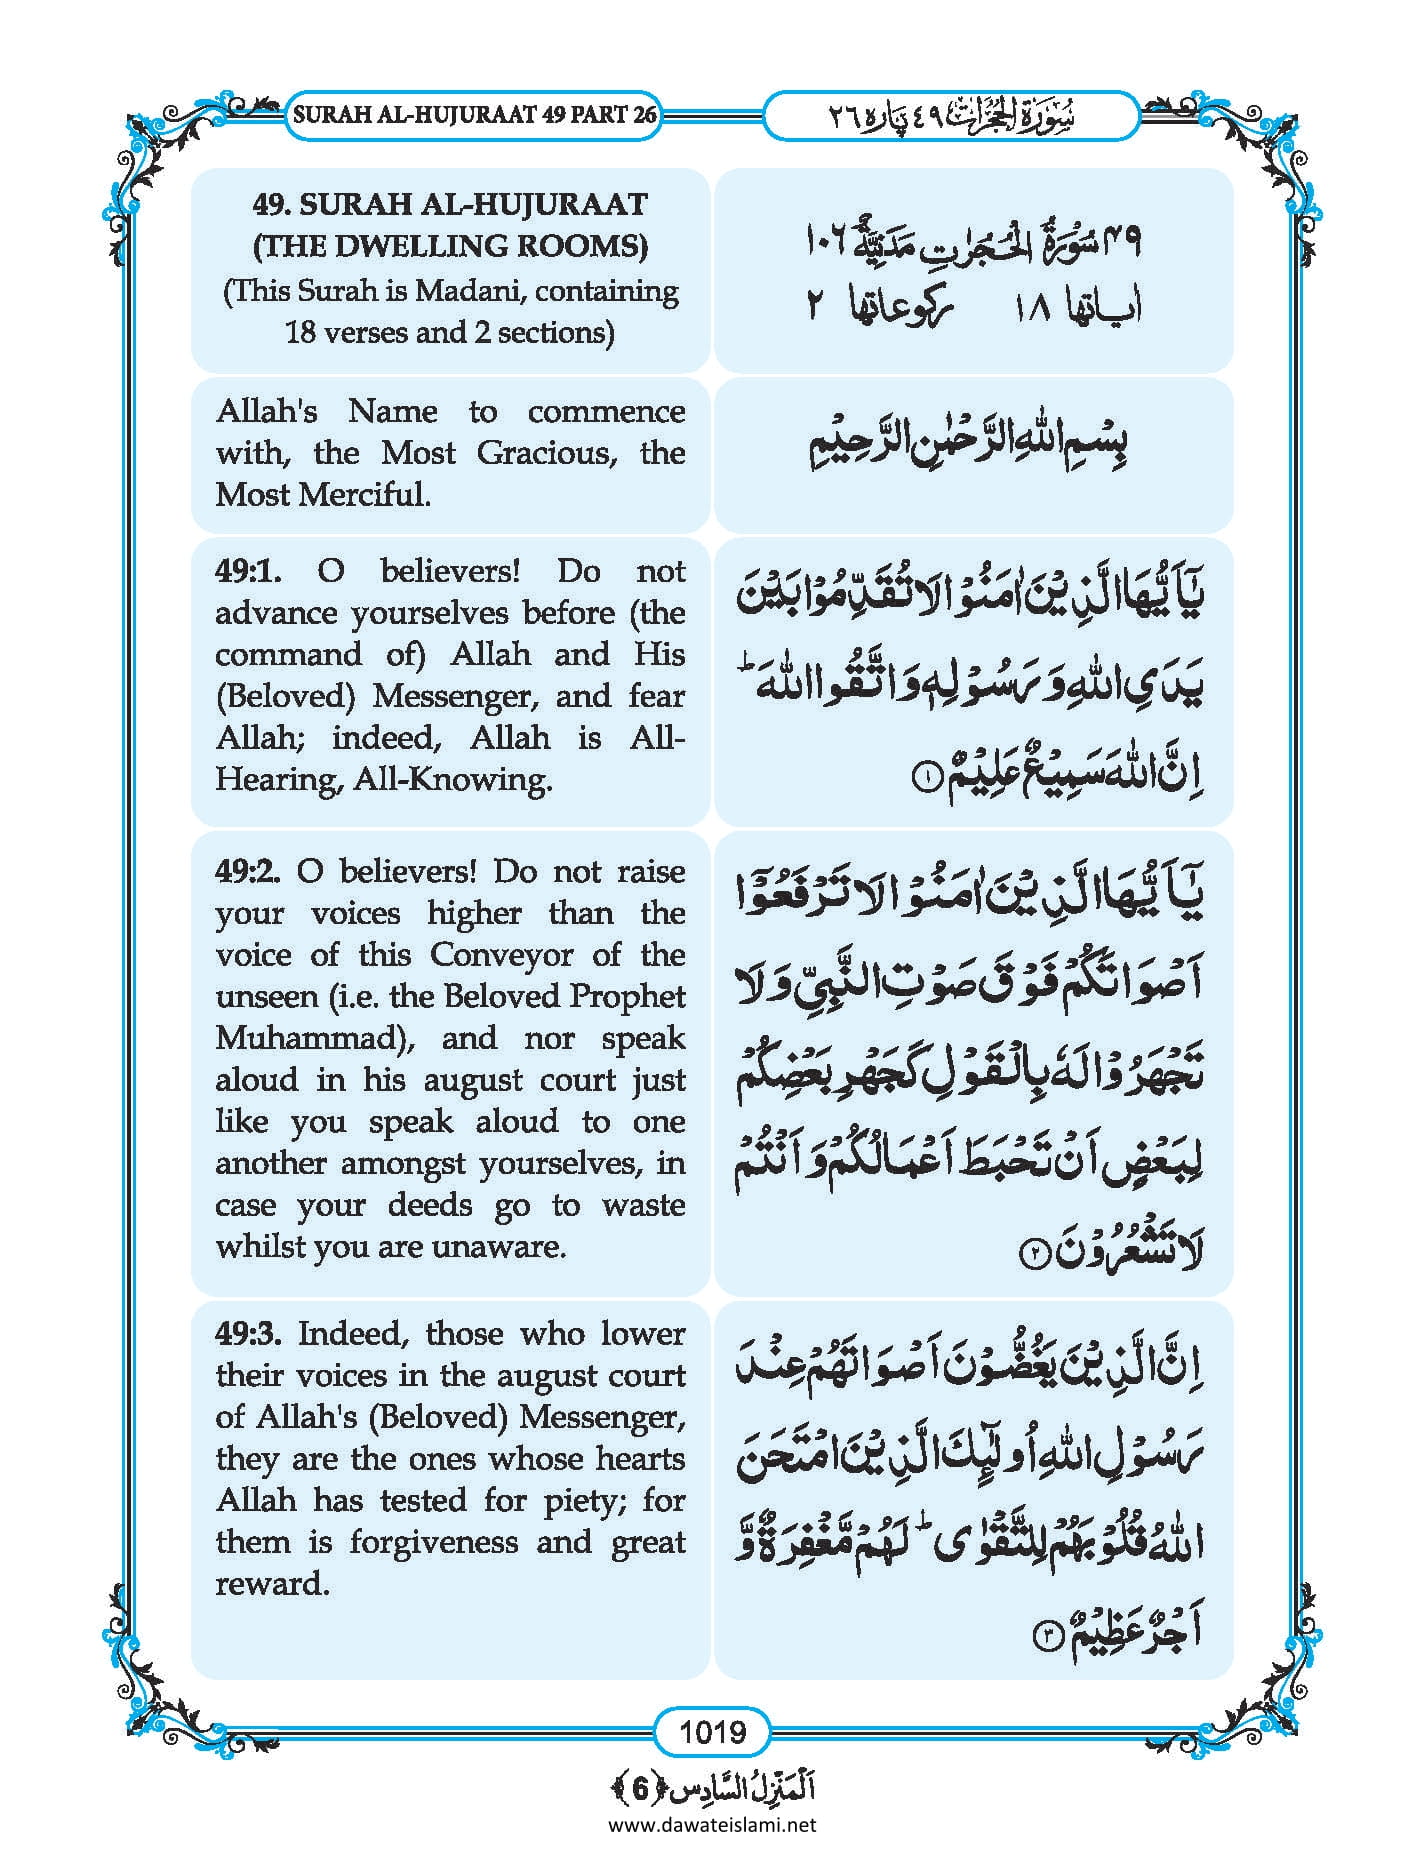 SURAH AL-HUJURAAT 49 PART 26
سُوۡرَةُ الۡحُجُرَات ٤٩ پارہ ٢٦
49. SURAH AL-HUJURAAT
(THE DWELLING ROOMS)
(This Surah is Madani, containing
18 verses and 2 sections)
۴۹ سُوۡرَةُ الۡحُجُرٰتِ مَدَنِيَّةٌ ۱۰۶
اٰیاتها ۱۸ رکوعاتها ۲
Allah's Name to commence
with, the Most Gracious, the
Most Merciful.
بِسۡمِ اللّٰهِ الرَّحۡمٰنِ الرَّحِيۡمِ
49:1. O believers! Do not
advance yourselves before (the
command of) Allah and His
(Beloved) Messenger, and fear
Allah; indeed, Allah is All-
Hearing, All-Knowing.
يٰۤاَيُّهَا الَّذِيۡنَ اٰمَنُوۡا لَا تُقَدِّمُوۡا بَيۡنَ
يَدَىِ اللّٰهِ وَ رَسُوۡلِهٖ وَ اتَّقُوا اللّٰهَ ؕ
اِنَّ اللّٰهَ سَمِيۡعٌ عَلِيۡمٌ ﴿۱﴾
49:2. O believers! Do not raise
your voices higher than the
voice of this Conveyor of the
unseen (i.e. the Beloved Prophet
Muhammad), and nor speak
aloud in his august court just
like you speak aloud to one
another amongst yourselves, in
case your deeds go to waste
whilst you are unaware.
يٰۤاَيُّهَا الَّذِيۡنَ اٰمَنُوۡا لَا تَرۡفَعُوۡۤا
اَصۡوَاتَكُمۡ فَوۡقَ صَوۡتِ النَّبِىِّ وَ لَا
تَجۡهَرُوۡا لَهٗ بِالۡقَوۡلِ كَجَهۡرِ بَعۡضِكُمۡ
لِبَعۡضٍ اَنۡ تَحۡبَطَ اَعۡمَالُكُمۡ وَ اَنۡتُمۡ
لَا تَشۡعُرُوۡنَ ﴿۲﴾
49:3. Indeed, those who lower
their voices in the august court
of Allah's (Beloved) Messenger,
they are the ones whose hearts
Allah has tested for piety; for
them is forgiveness and great
reward.
اِنَّ الَّذِيۡنَ يَغُضُّوۡنَ اَصۡوَاتَهُمۡ عِنۡدَ
رَسُوۡلِ اللّٰهِ اُولٰٓئِكَ الَّذِيۡنَ امۡتَحَنَ
اللّٰهُ قُلُوۡبَهُمۡ لِلتَّقۡوٰى ؕ لَهُمۡ مَّغۡفِرَةٌ وَّ
اَجۡرٌ عَظِيۡمٌ ﴿۳﴾
1019
اَلۡمَنۡزِلُ السَّادِس ﴿6﴾
www.dawateislami.net